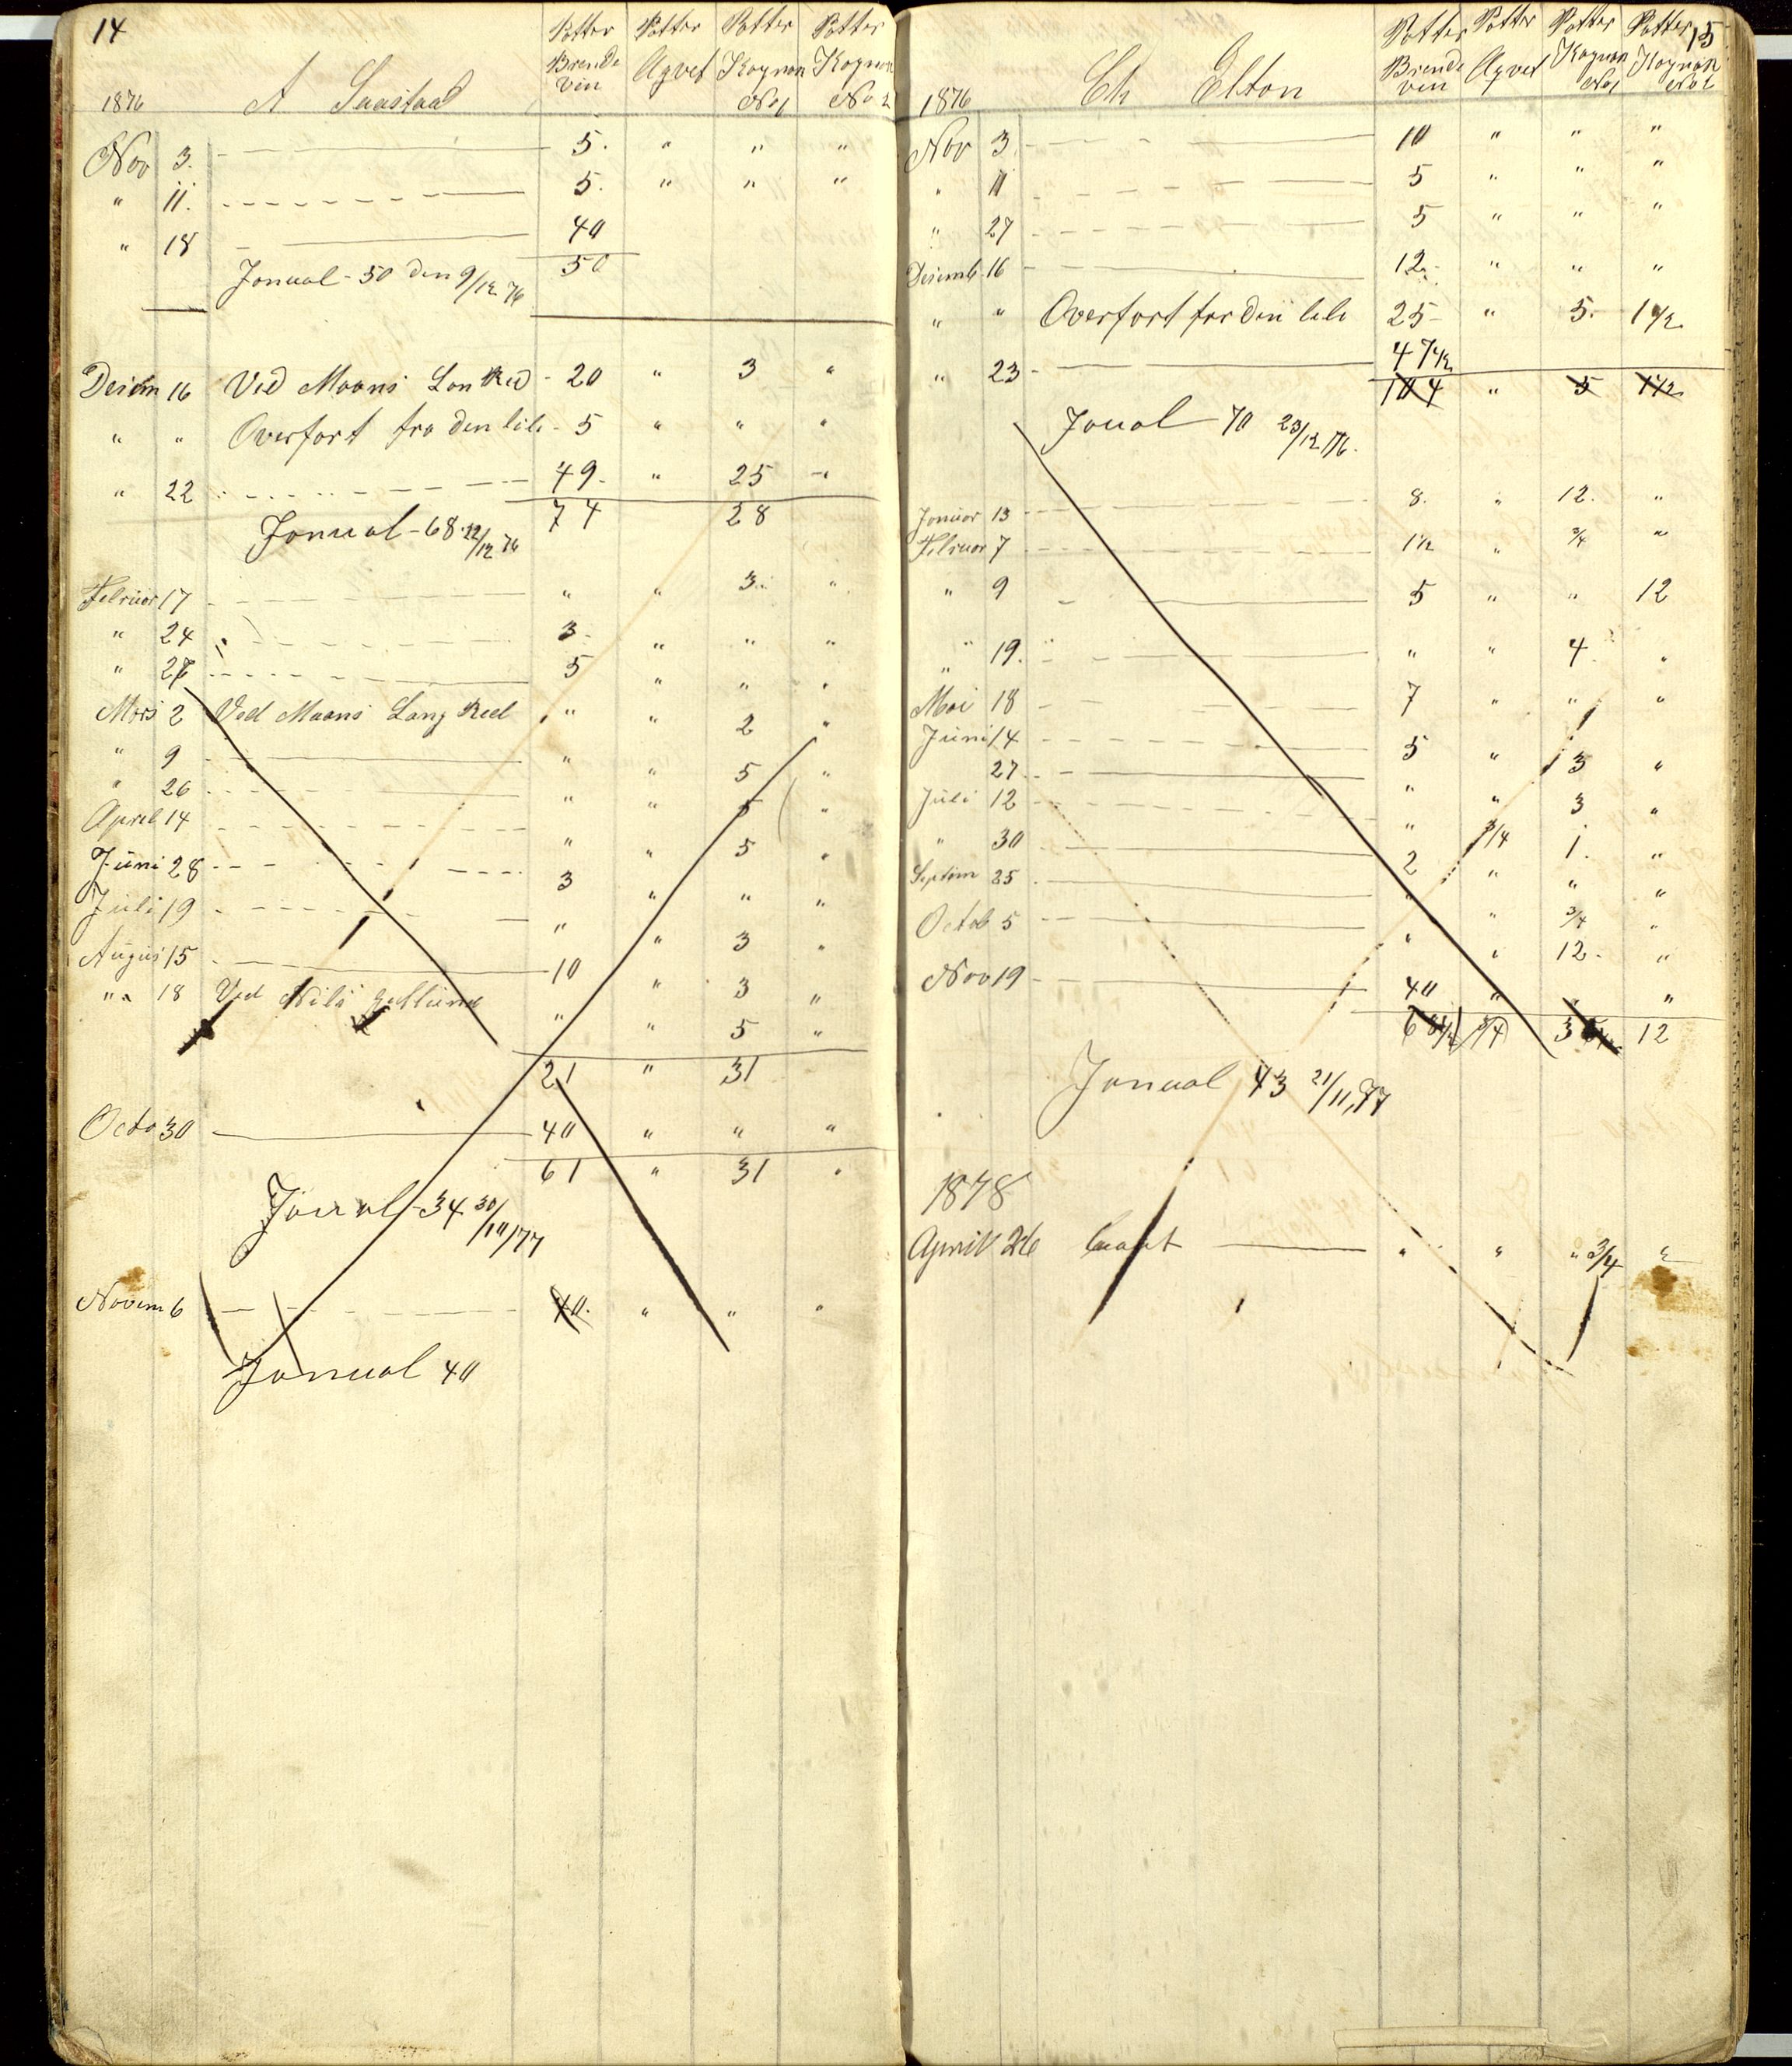 14
Potter Potter Potter Potter
Brende Aqvet Kognan Kognan
vin No 1 No 2
1876 A Saastad
Nov 3. 5. " " "
" 11. 5. " " "
" 18 40
50
Jonual - 50 den 9/12 76
Desem 16 Ved Moons Lon Red - 20 " 3 "
" " Overfort fra den lile - 5 " " "
" 22 49. " 25 "
74 28
Jonual - 68. 22/12 76
Februor 17 " " 3. "
" 24 3. " " "
" 27 5 " " "
Mors 2 Ved Moons Lang Red " " 2 "
" 9 " " 5 "
" 26 " " 5 "
April 14 " " 5 "
Juni 28 3 " " "
Juli 19 " " 3 "
Augus 15 10 " 3 "
" 18 Ved Nils " " 5 "
21 " 31
Octo 30 40 " " "
61 " 31 "
Jonual - 34 30/10/77
Novem 6 40. " " "
Jonual 40
15
Potter Potter Potter Potter
Brende Aqvet Kognan Kognan
vin No 1 No 2
1876 Ch Elton
Nov 3 10 " " "
" 11 5 " " "
" 27 5 " " "
Desemb 16 12. " " "
" " Overfort fra den lile 25 - " 5. 1 1/2
" 23 47 1/2
104 " 5 1 1/2
Joual - 70 23/12 76.
Jonuor 13 8. " 12. "
Februor 7 1 1/2 " 3/4 "
" 9 5 " " 12
" 19. " " 4. "
Mai 18 7 " " "
Juni 14 5 " 3 "
27 " " 3 "
Juli 12 " 3/4 1. "
" 30 2 " " "
Septem 25 " " 3/4 "
Octob 5 " " 12. "
Nov 19 40 " " "
3/4 12
Jonual 43 21/11, 77
1878
April 26 " " " 3/4 "